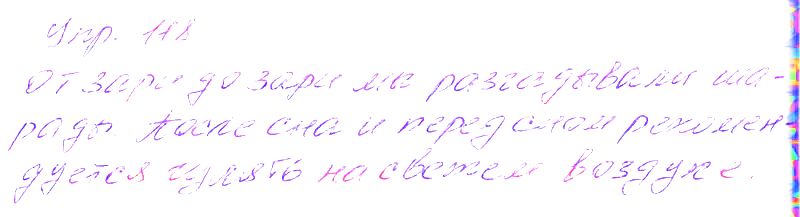 Упр. 118
От зари до зари мы разгадывали ша-
рады. После сна и перед сном рекомен-
дуется гулять на свежем воздухе.